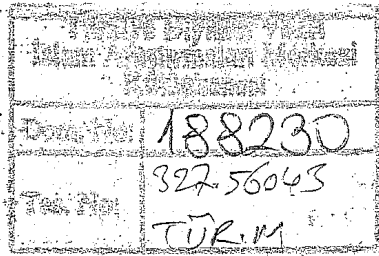 Türkiye Diyanet Vakfı
İslâm Araştırmaları Merkezi
Kütüphanesi
Dem. No: 188230
Tas. No: 327.56043
TÜR.M